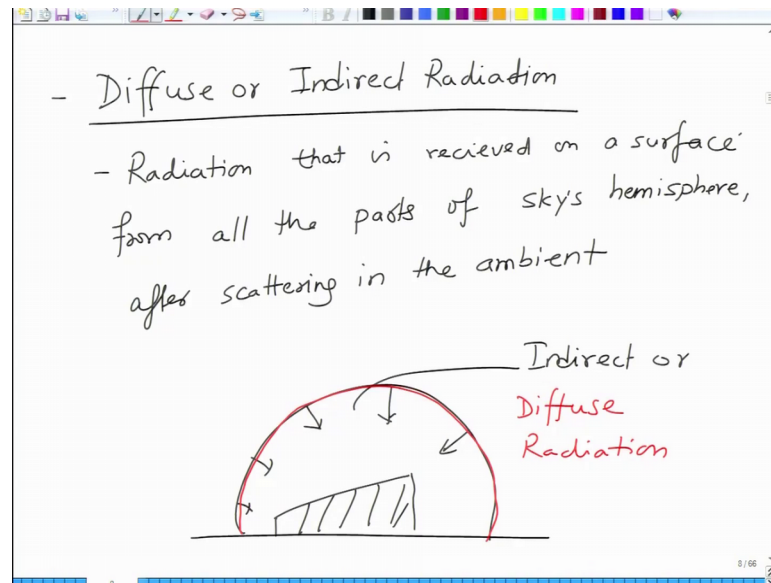 - Diffuse or Indirect Radiation
- Radiation that is recieved on a surface
from all the parts of sky's hemisphere,
after scattering in the ambient
Indirect or
Diffuse
Radiation
8/66